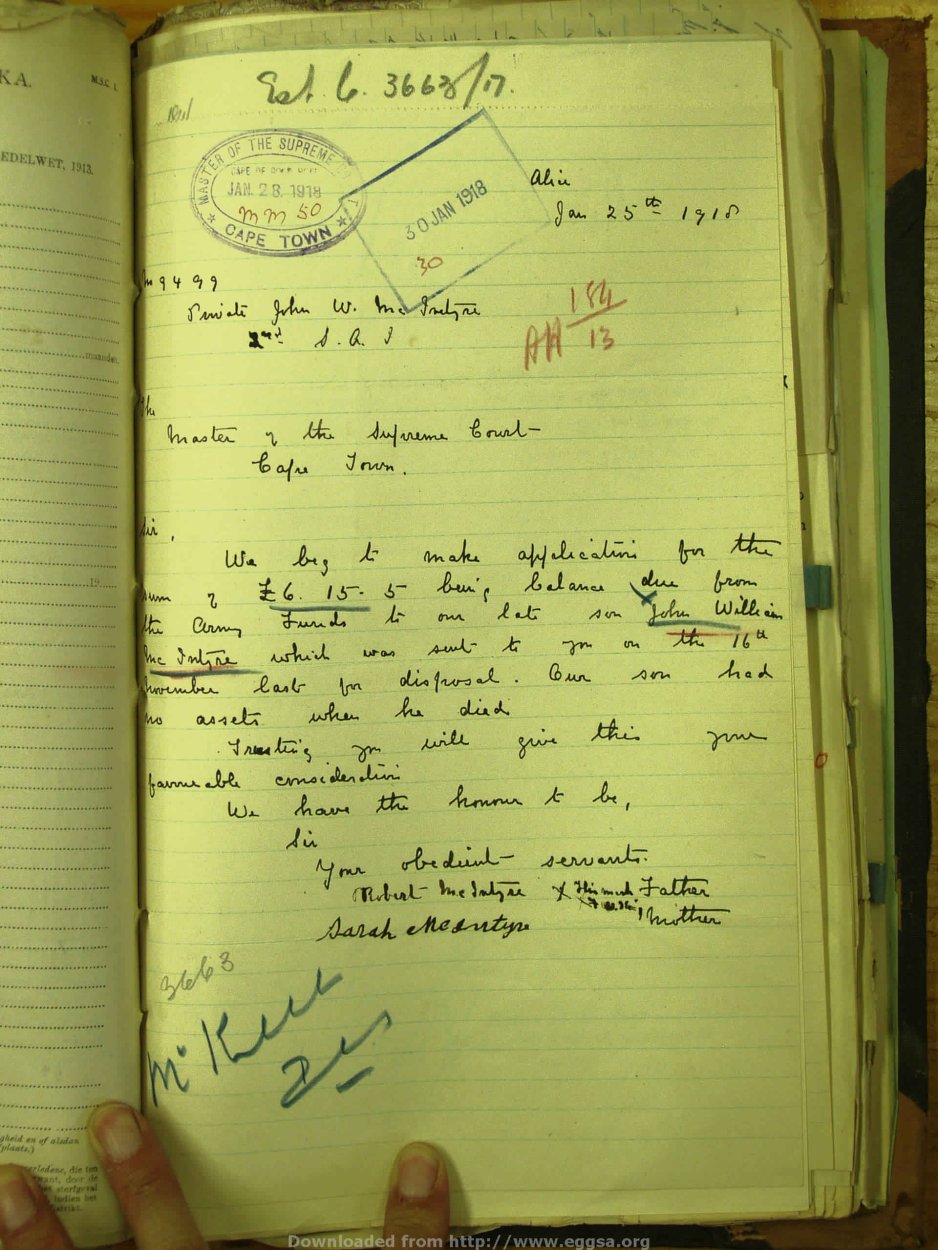 KA.
M.S.C. 1.
EDELWET, 1913.
maanden.
19
gheid en of alsdan
plaats.)
erledene, die ten
door de
sterfgeval
indien het
Est. C. 3663/17.
MASTER OF THE SUPREME
CAPE OF
JAN. 28. 1918
MM 50
CAPE TOWN
30 JAN 1918
30
Alice
Jan 25th 1918
No 9499
Private John W. McIntyre
2nd S. A. I
184
AH 13
The
Master of the Supreme Court
Cape Town.
Sir,
We beg to make application for the
sum of £6. 15. 5 being balance due from
the Army Funds to our late son John William
McIntyre which was sent to you on the 16th
November last for disposal. Our son had
no assets when he died
Trusting you will give this your
favourable consideration
We have the honour to be,
Sir
Your obedient servants.
Robert McIntyre X His mark Father
Sarah McIntyre Mother
3663
Downloaded from http://www.eggsa.org